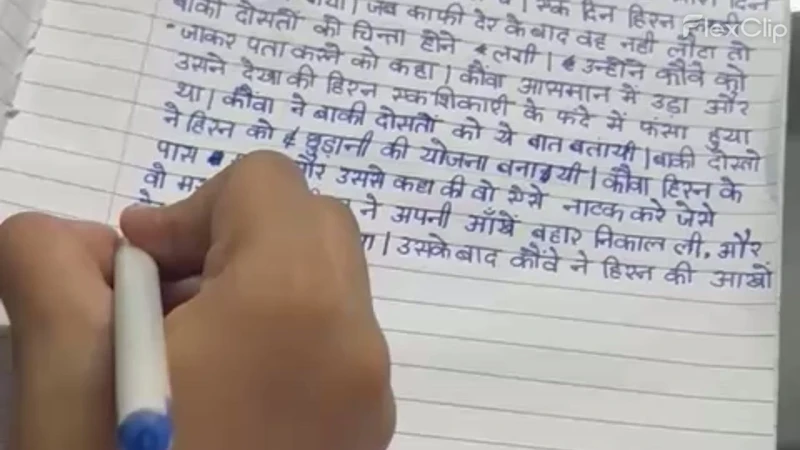 एक दिन हिरन
बाकी दोस्तों को चिन्ता होने लगी। जब काफी देर के बाद वह नही लौटा तो
जाकर पता करने को कहा। उन्होंने कौवे को
उसने देखा की हिरन एक शिकारी के फंदे में फंसा हुया
था। कौंवा ने बाकी दोसतों को ये बात बतायी। बाकी दोस्तो
ने हिरन को छुड़ानी की योजना बनायी। कौवा हिरन के
पास और उससे कहा की वो ऐसे नाटक करे जेसे
वो ने अपनी आँखें बहार निकाल ली, और
उसके बाद कौंवे ने हिरन की आखों
FlexClip